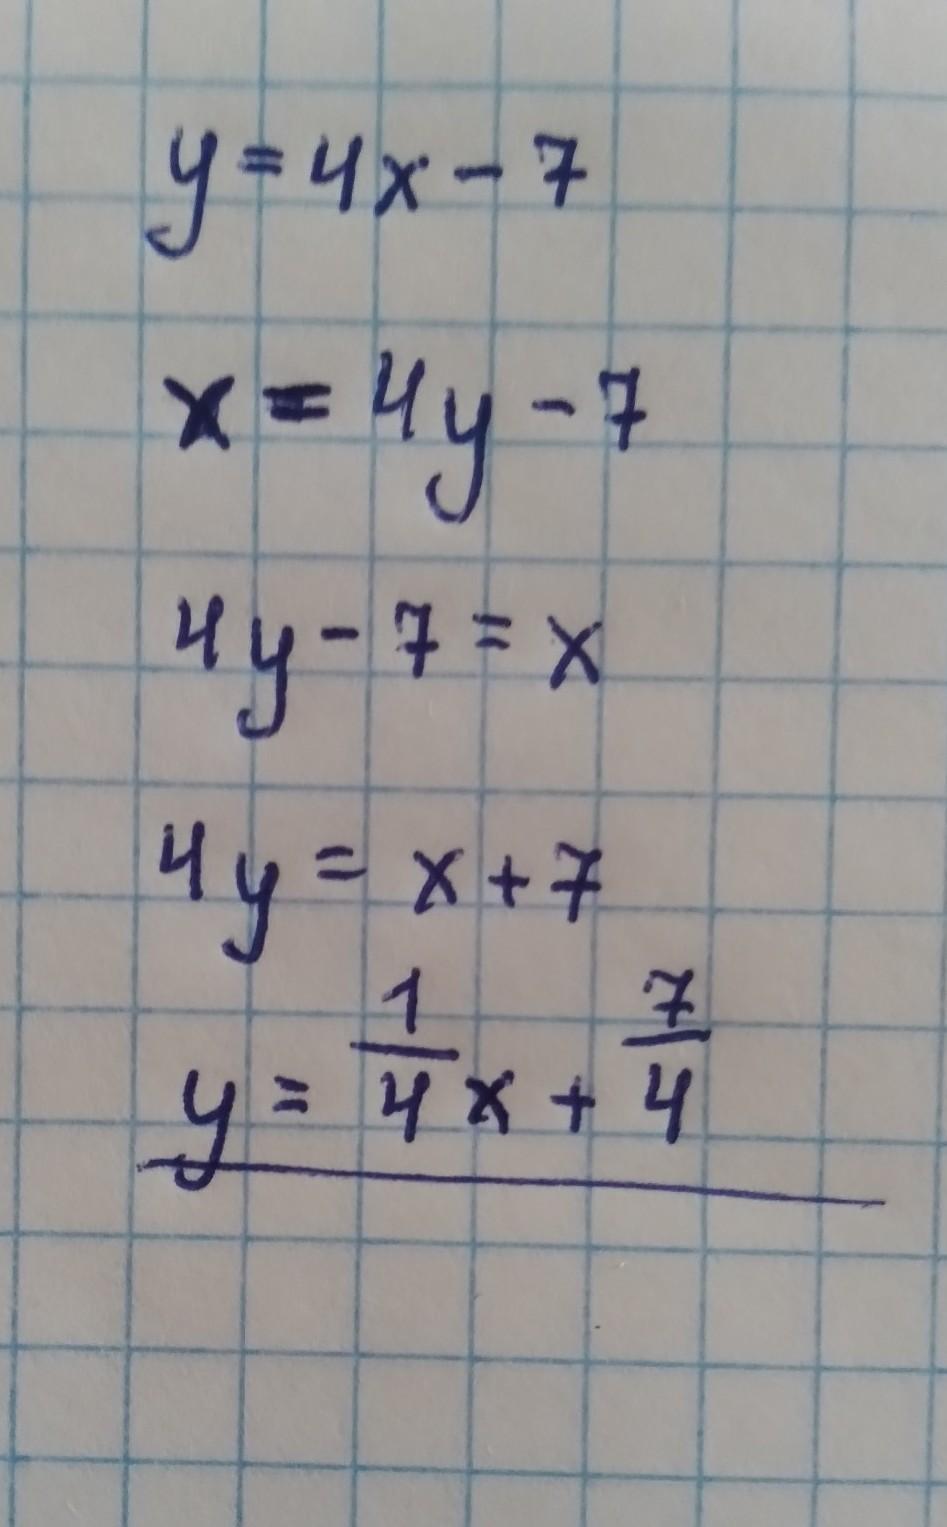 y = 4x - 7
x = 4y - 7
4y - 7 = x
4y = x + 7
y = 1/4 x + 7/4